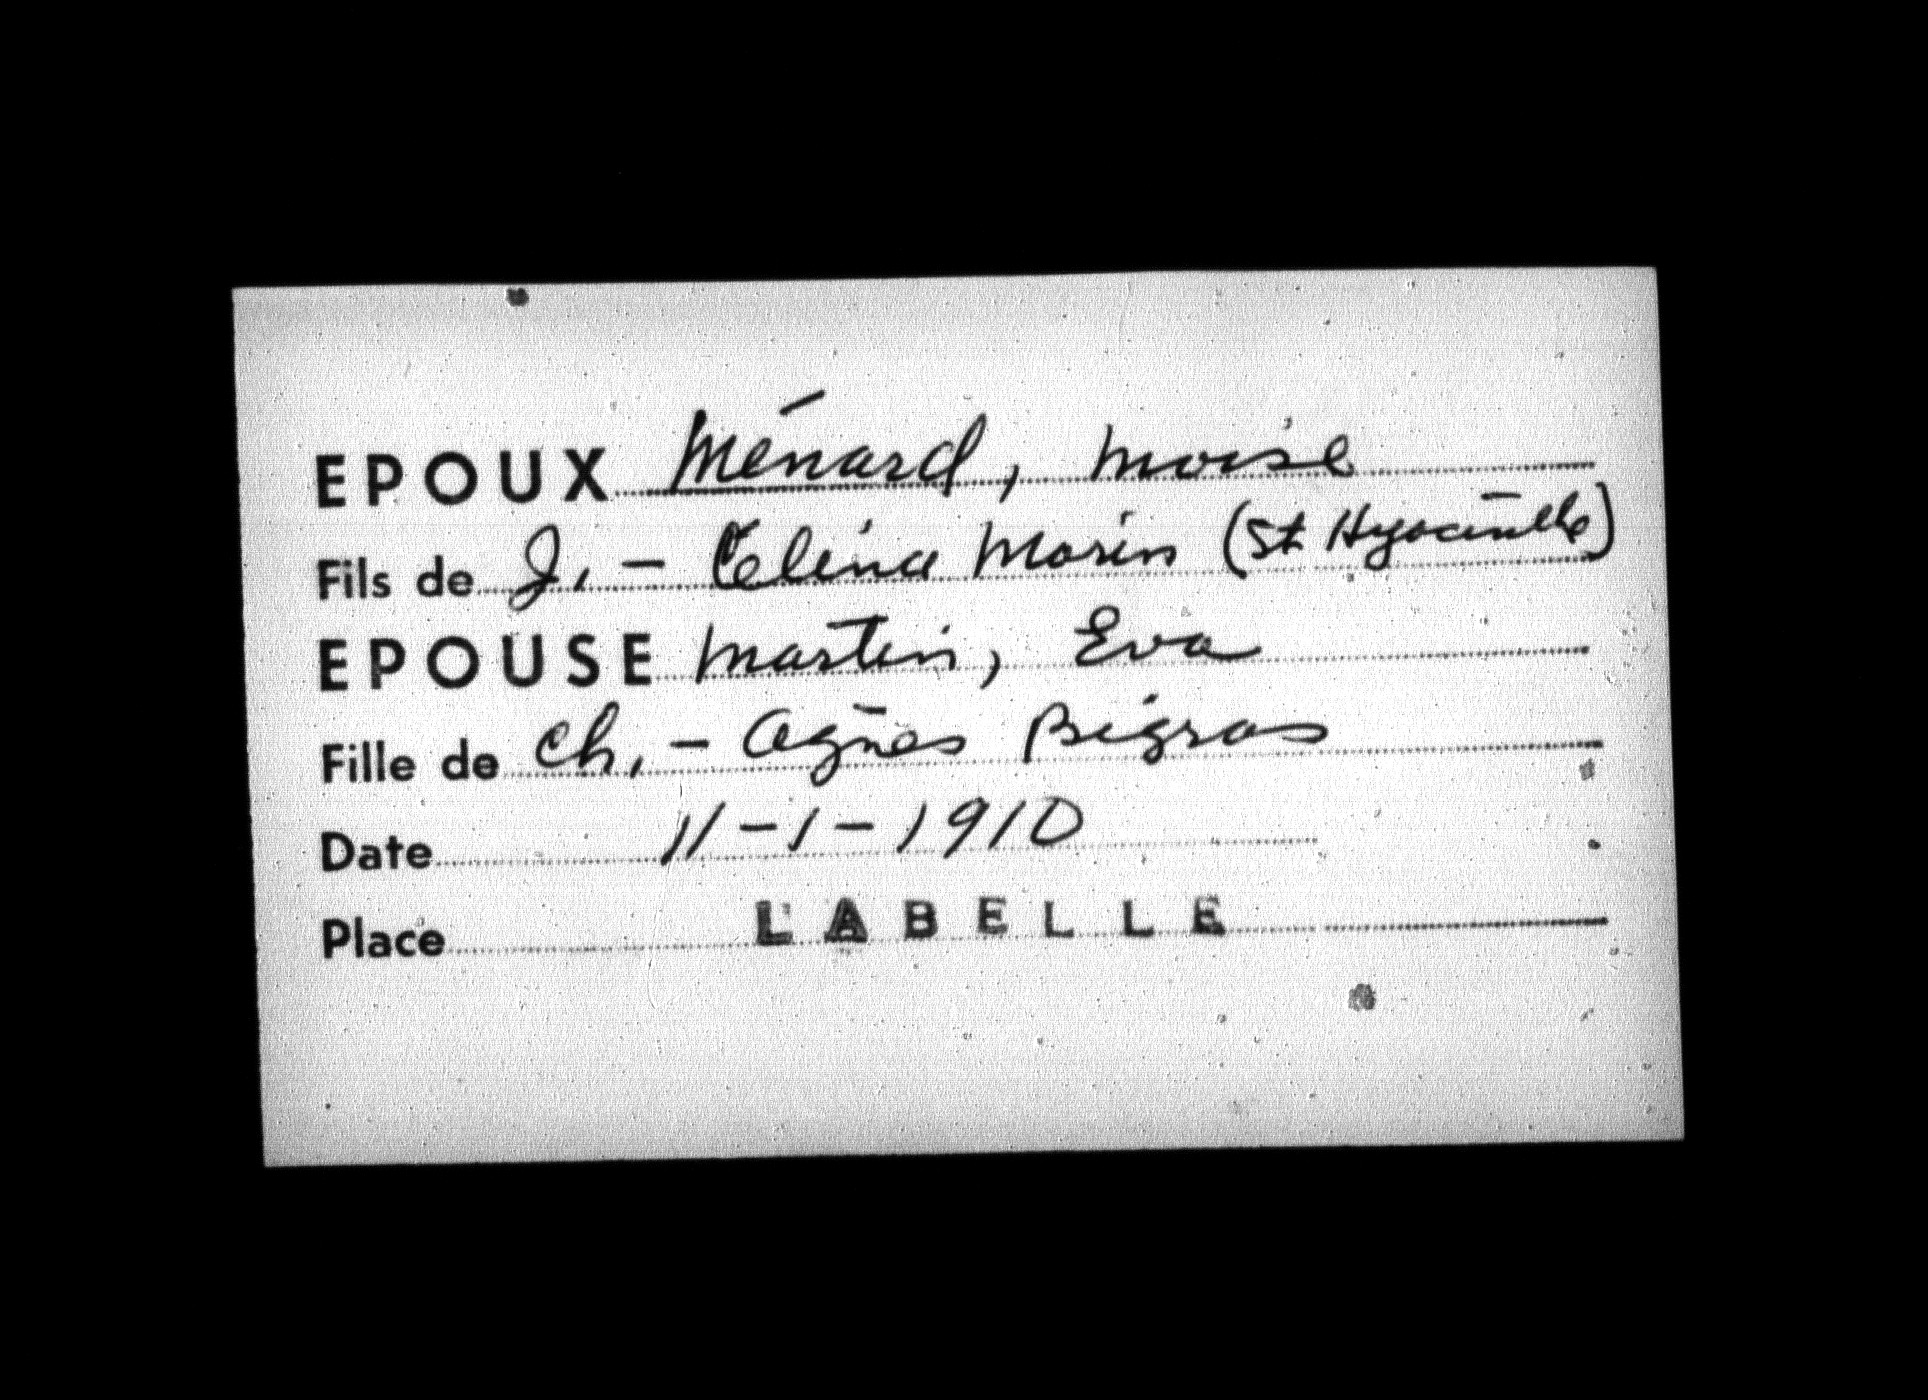 EPOUX Ménard, Moise
Fils de J. - Célina Morin (St Hyacinthe)
EPOUSE Martin, Eva
Fille de Ch. - Agnès Bigras
Date 11-1-1910
Place LABELLE